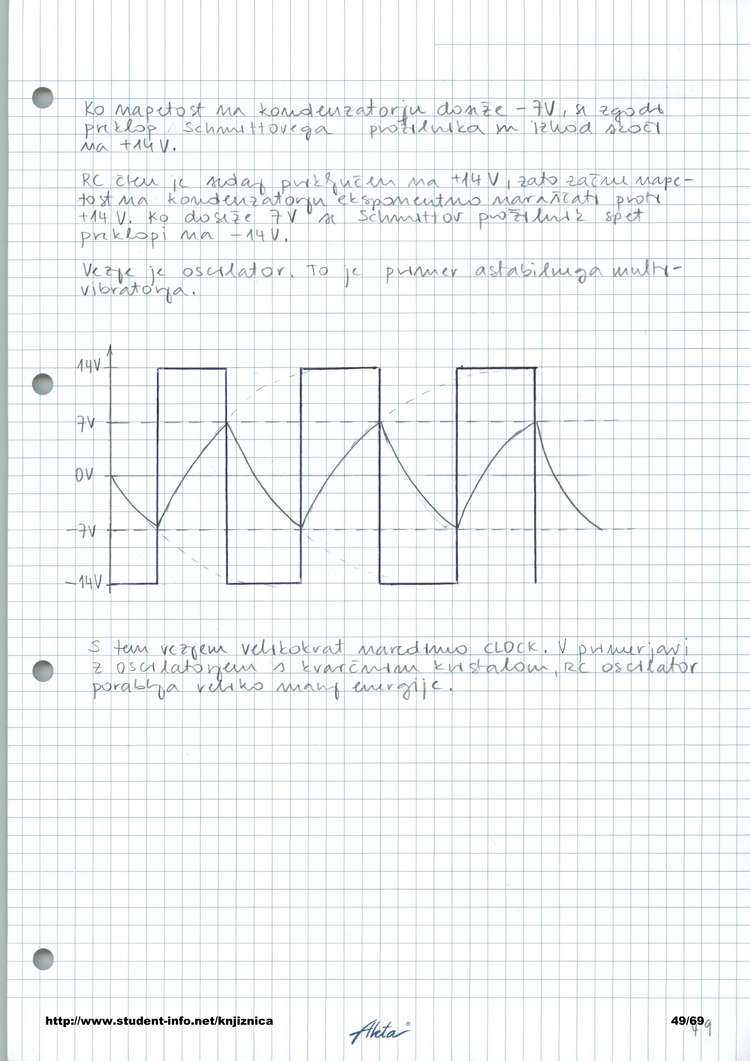 Ko napetost na kondenzatorju doseže -7V, se zgodi
preklop Schmittovega prožilnika in izhod skoči
na +14V.
RC člen je sedaj priključen na +14V, zato začne nape-
tost na kondenzatorju eksponentno naraščati proti
+14V. Ko doseže 7V se Schmittov prožilnik spet
preklopi na -14V.
Vezje je oscilator. To je primer astabilnega multi-
vibratorja.
14V
7V
0V
-7V
-14V
S tem vezjem velikokrat naredimo CLOCK. V primerjavi
z oscilatorjem s kvarčnim kristalom, RC oscilator
porablja veliko manj energije.
http://www.student-info.net/knjiznica
Aleta
49/69
49